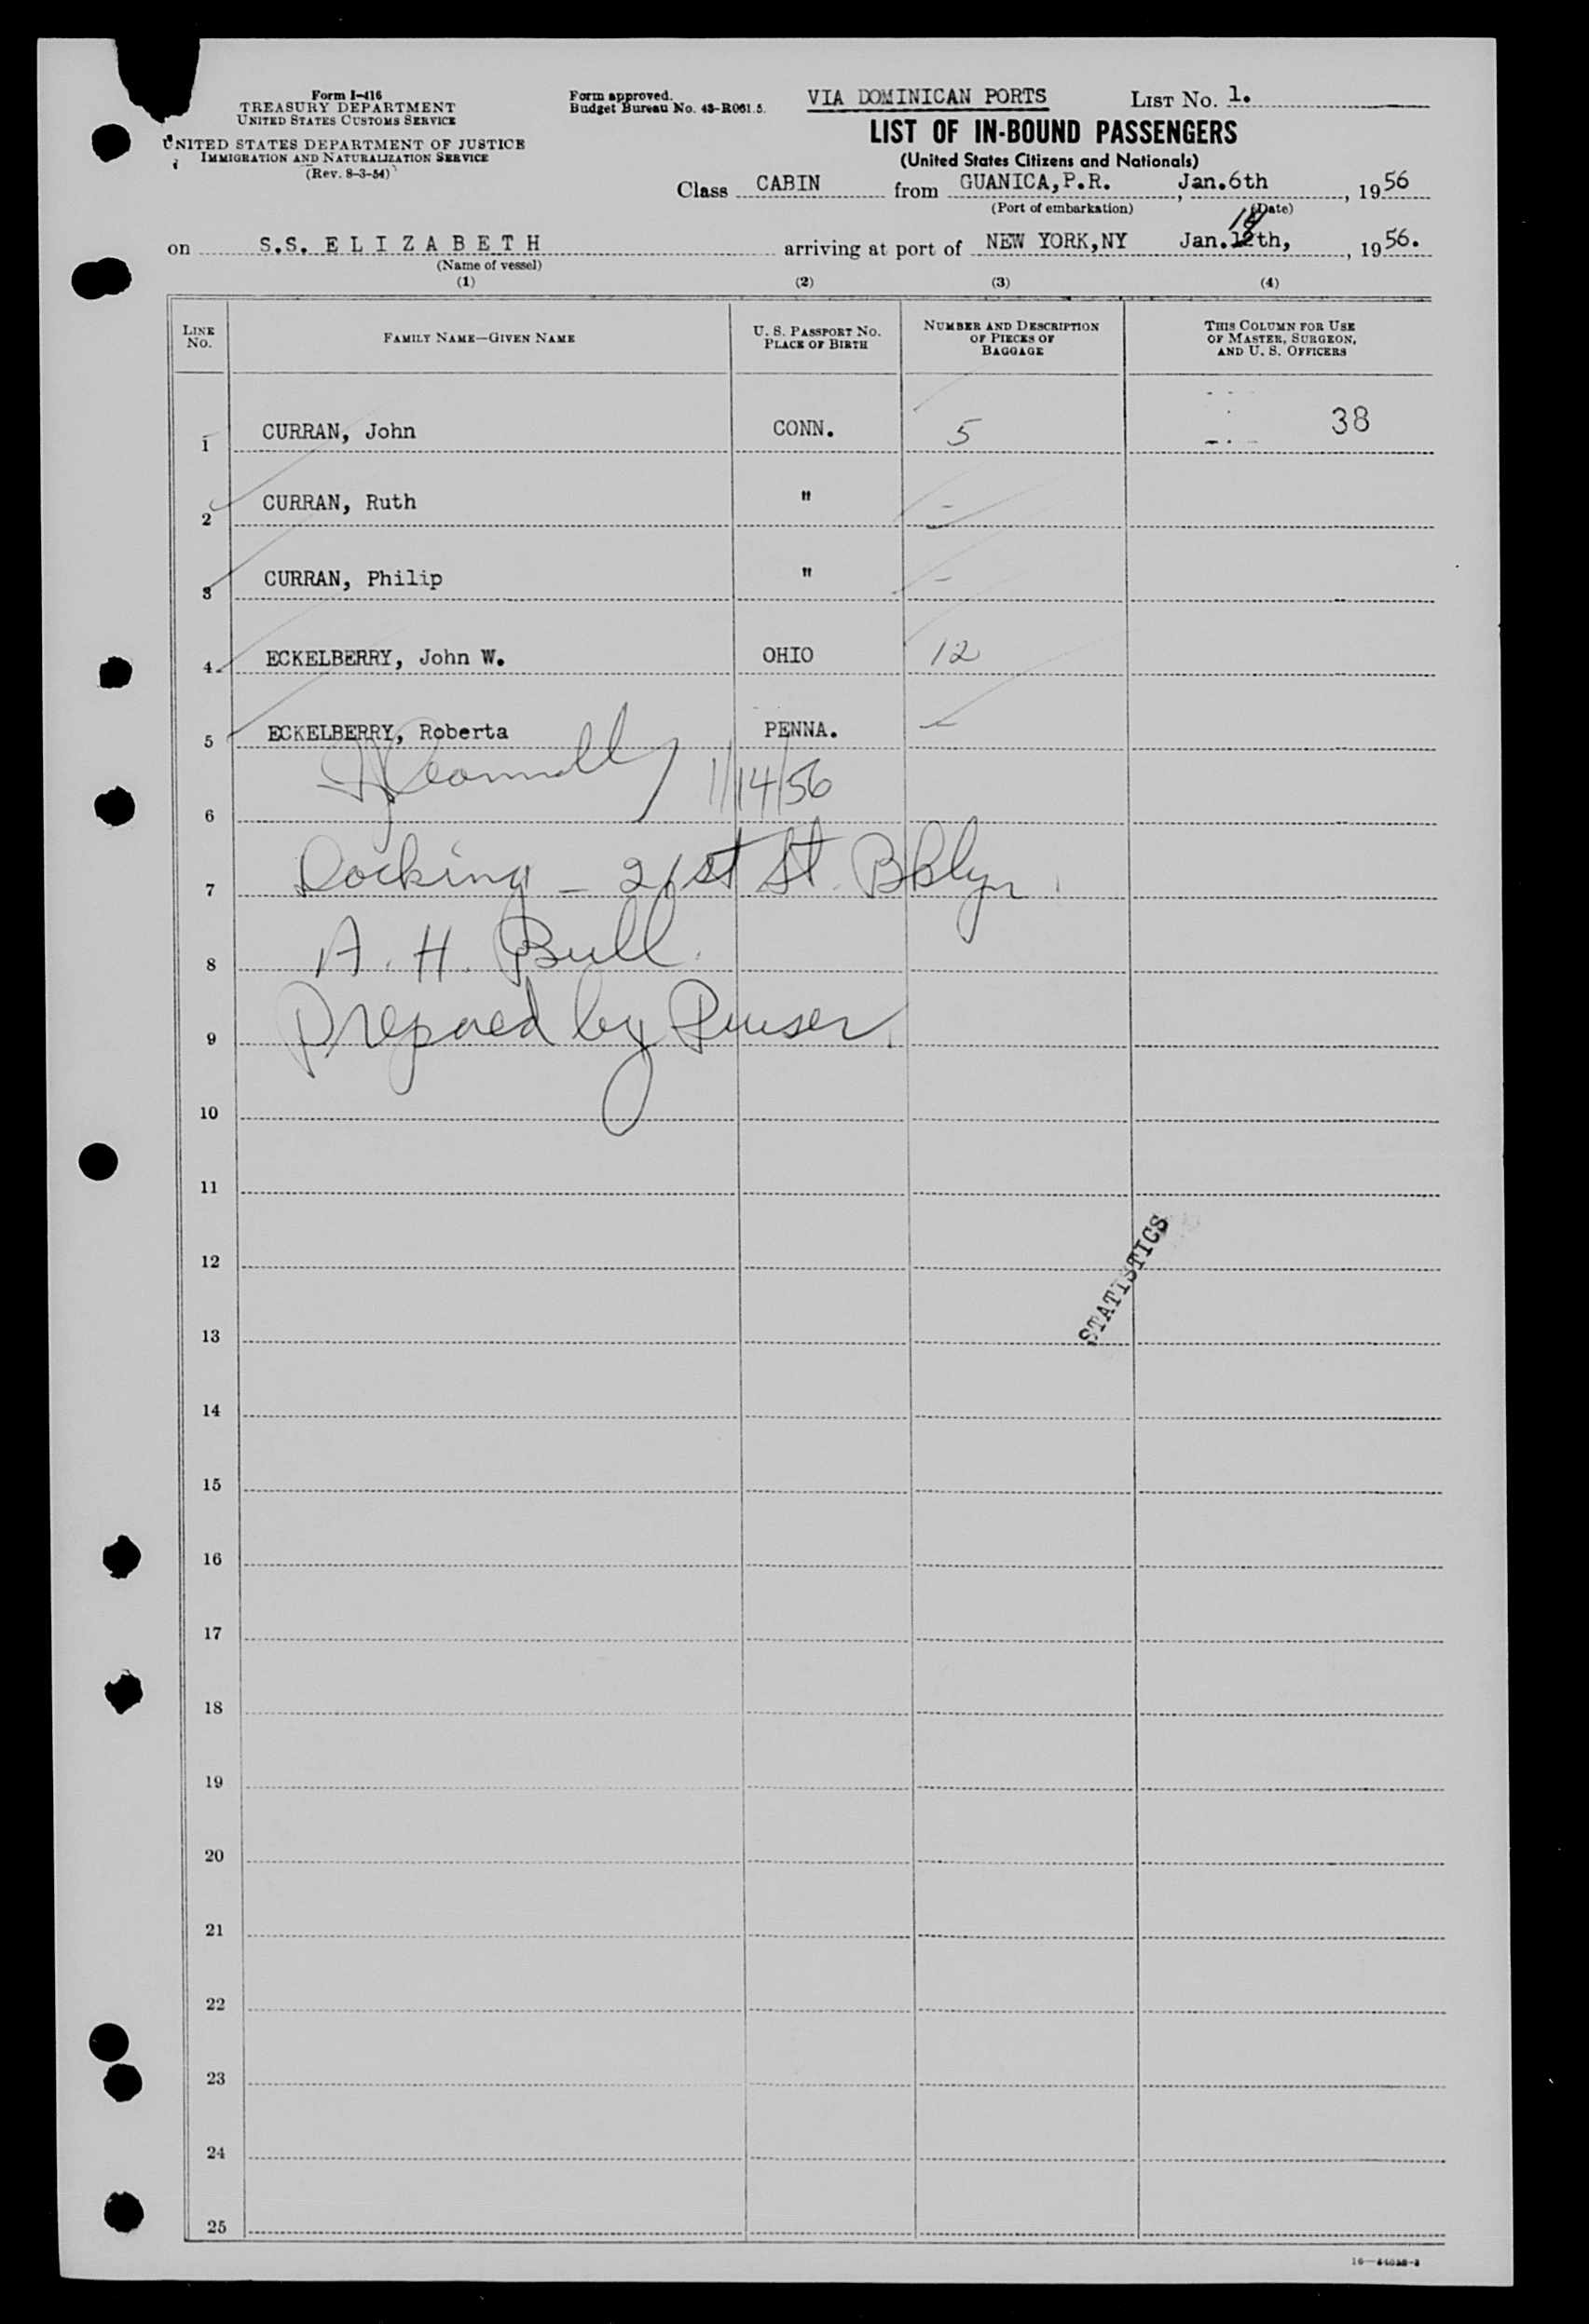 Form I-416
TREASURY DEPARTMENT
UNITED STATES CUSTOMS SERVICE
UNITED STATES DEPARTMENT OF JUSTICE
IMMIGRATION AND NATURALIZATION SERVICE
(Rev. 8-3-54)
Form approved.
Budget Bureau No. 43-R061.5.
VIA DOMINICAN PORTS
LIST No. 1.
LIST OF IN-BOUND PASSENGERS
(United States Citizens and Nationals)
Class CABIN from GUANICA,P.R. , Jan.6th , 1956
(Port of embarkation) (Date)
14
on S.S. E L I Z A B E T H arriving at port of NEW YORK,NY Jan.12th, , 1956.
(Name of vessel)
(1) (2) (3) (4)
LINE NO. FAMILY NAME—GIVEN NAME U. S. PASSPORT NO. PLACE OF BIRTH NUMBER AND DESCRIPTION OF PIECES OF BAGGAGE THIS COLUMN FOR USE OF MASTER, SURGEON, AND U. S. OFFICERS
1 CURRAN, John CONN. 5 38
2 CURRAN, Ruth " -
3 CURRAN, Philip " -
4 ECKELBERRY, John W. OHIO 12
5 ECKELBERRY, Roberta PENNA. -
1/14/56
6
7 Docking - 21st St. Bklyn.
8 A. H. Bull.
9 Prepared by Purser.
10
11
12
STATISTICS
13
14
15
16
17
18
19
20
21
22
23
24
25